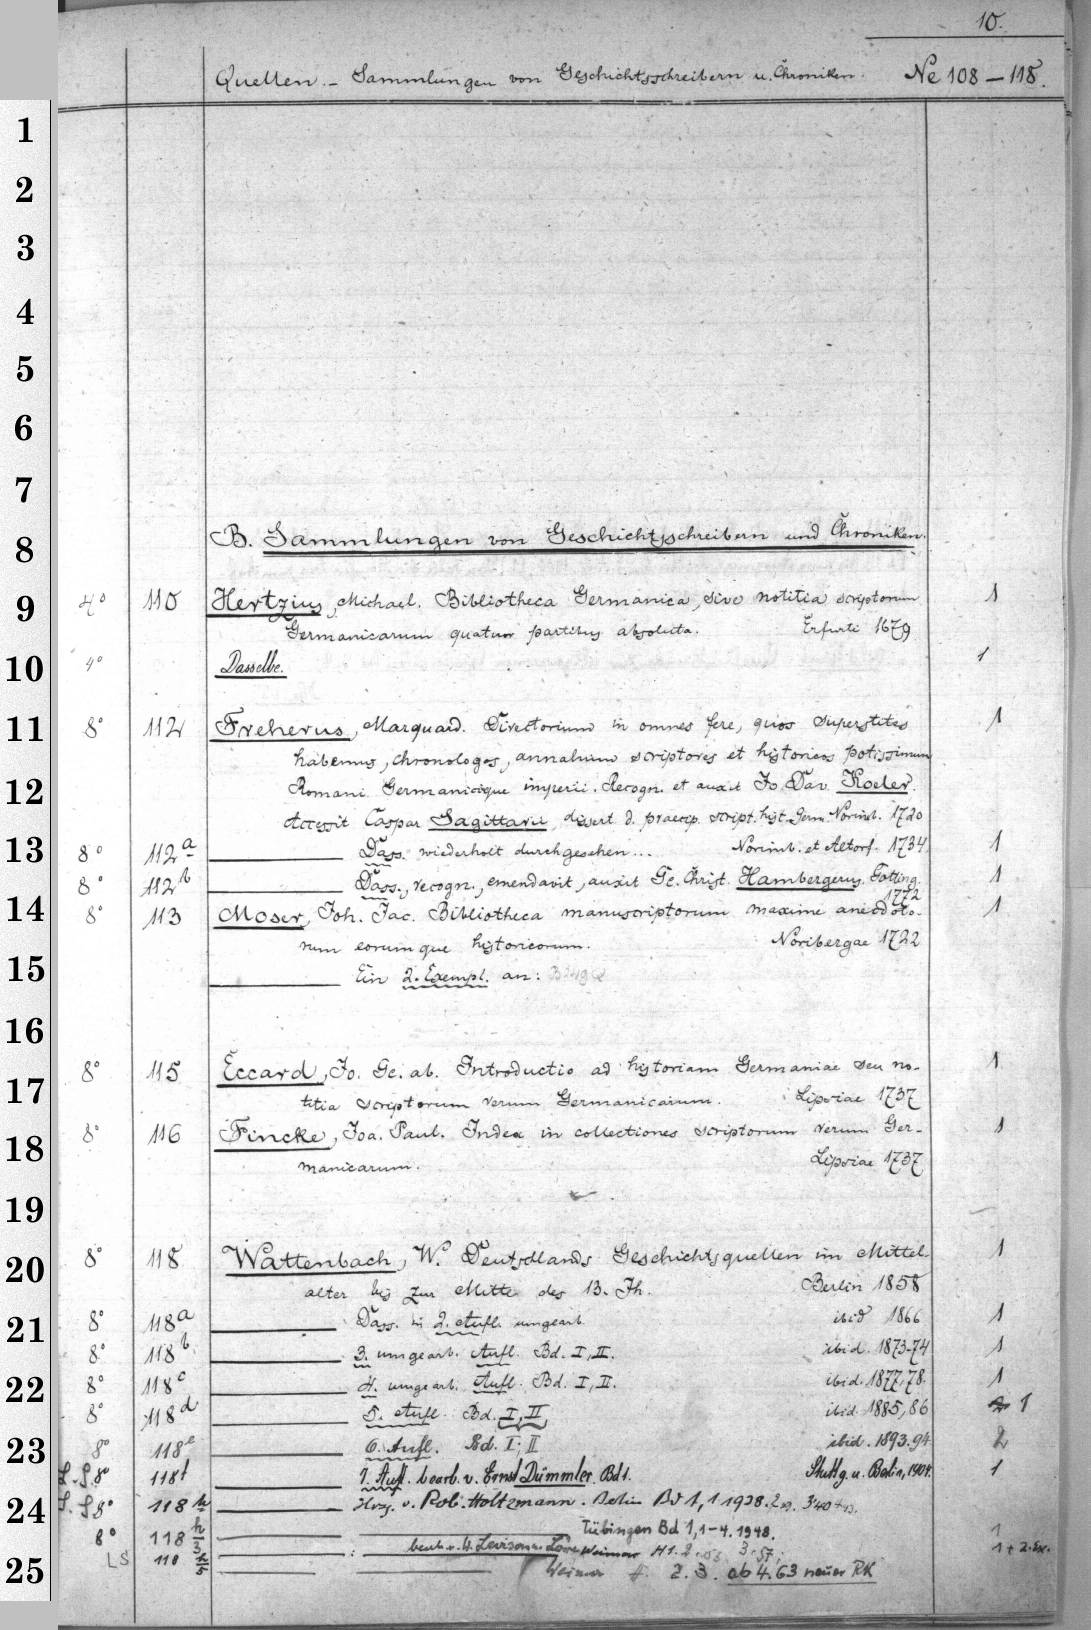 10.
Quellen. - Sammlungen von Geschichtsschreibern u. Chroniken. No 108 - 118.
1
2
3
4
5
6
7
8 B. Sammlungen von Geschichtsschreibern und Chroniken.
9 4° 110 Hertzius, Michael. Bibliotheca Germanica, sive notitia scriptorum 1
Germanicarum quatuor partibus absoluta. Erfurti 1679
10 4° Dasselbe. 1
11 8° 112 Freherus, Marquard. Directorium in omnes fere, quos superstites 1
habemus, chronologos, annalium scriptores et historicos potissimum
12 Romani Germanicique imperii. Recogn. et auxit Jo. Dav. Koeler.
Accessit Caspar Sagittarii dissert d. praecip. script. hist. Germ. Norimb. 1720
13 8° 112a Dass. wiederholt durchgesehen... Norimb. et Altorf. 1734 1
8° 112b Dass., recogn., emendavit, auxit Ge. Christ. Hambergerus. Gotting. 1772 1
14 8° 113 Moser, Joh. Jac. Bibliotheca manuscriptorum maxime anecdoto- 1
rum eorumque historicorum. Noribergae 1722
15 Ein 2. Exempl. an:
16
8° 115 Eccard, Jo. Ge. ab. Introductio ad historiam Germaniae seu no- 1
17 titia scriptorum rerum Germanicarum. Lipsiae 1737
18 8° 116 Fincke, Joa. Paul. Index in collectiones scriptorum rerum Ger- 1
manicarum. Lipsiae 1737
19
20 8° 118 Wattenbach, W. Deutschlands Geschichtsquellen im Mittel- 1
alter bis zur Mitte des 13. Jh. Berlin 1858
21 8° 118a Dass. in 2. Aufl. umgearb. ibid 1866 1
8° 118b 3. umgearb. Aufl. Bd. I, II. ibid. 1873-74 1
22 8° 118c 4. umgearb. Aufl. Bd. I, II. ibid. 1877-78. 1
8° 118d 5. Aufl. Bd. I, II ibid. 1885, 86 1
23 8° 118e 6. Aufl. Bd. I, II ibid. 1893.94 2
L.S. 8° 118f 7. Aufl. bearb. v. Ernst Dümmler. Bd 1. Stuttg. u. Berlin, 1904. 1
24 L.S. 8° 118h Hrsg. v. Rob. Holtzmann. Berlin Bd 1,1 1938.
8° 118 h/3 Tübingen Bd 1, 1-4. 1948. 1
LS 118 h/5 bearb. v. W. Levison u. Löwe Weimar H 1. 2. 3. 57; 1 + 2. Ex.
25 Weimar H. 2. 3. ab 4. 63 neuer RK